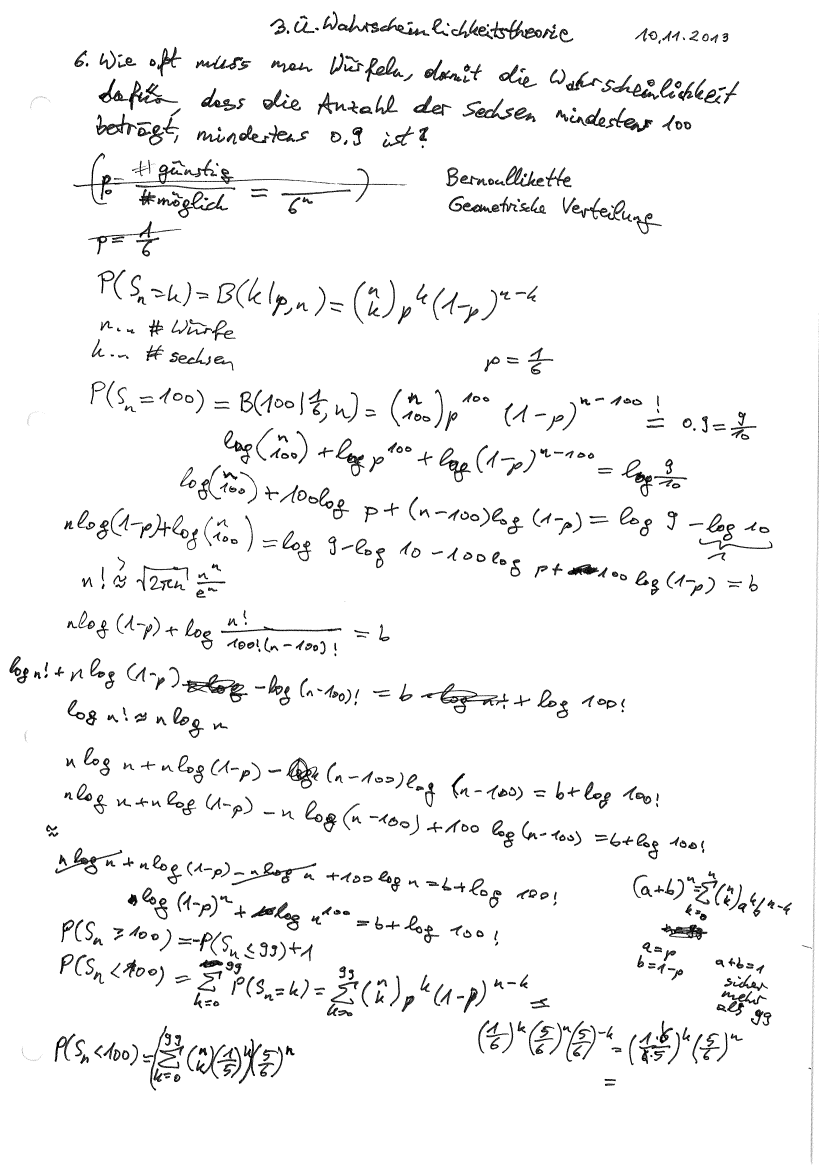 3. Ü. Wahrscheinlichkeitstheorie 10.11.2013
6. Wie oft muss man Würfeln, damit die Wahrscheinlichkeit
dafür, dass die Anzahl der Sechsen mindestens 100
beträgt, mindestens 0.9 ist?
(p = #günstig / #möglich = / 6^n)
Bernoullikette
Geometrische Verteilung
p = 1/6
P(S_n = k) = B(k|p,n) = (n k) p^k (1-p)^{n-k}
n... # Würfe
k... # sechsen p = 1/6
P(S_n = 100) = B(100|1/6, n) = (n 100) p^100 (1-p)^{n-100} =! 0.9 = 9/10
log(n 100) + log p^100 + log(1-p)^{n-100} = log 9/10
log(n 100) + 100 log p + (n-100) log(1-p) = log 9 - log 10
n log(1-p) + log(n 100) = log 9 - log 10 - 100 log p + 100 log(1-p) = b
n! ≈ √(2πn) n^n/e^n
n log(1-p) + log n!/(100!(n-100)!) = b
log n! + n log(1-p) - log(n-100)! = b - log n! + log 100!
log n! ≈ n log n
n log n + n log(1-p) - (n-100) log(n-100) = b + log 100!
n log n + n log(1-p) - n log(n-100) + 100 log(n-100) = b + log 100!
≈
n log n + n log(1-p) - n log n + 100 log n = b + log 100!
log(1-p)^n + log n^100 = b + log 100!
P(S_n ≥ 100) = -P(S_n ≤ 99) + 1
P(S_n < 100) = Σ_{k=0}^{99} P(S_n = k) = Σ_{k=0}^{99} (n k) p^k (1-p)^{n-k} ≤
(a+b)^n = Σ_{k=0}^{n} (n k) a^k b^{n-k}
a = p
b = 1-p
a+b = 1
sicher
mehr
als 99
P(S_n < 100) = (Σ_{k=0}^{99} (n k)(1/5)^k)(5/6)^n
(1/6)^k (5/6)^n (5/6)^{-k} = (1·6/6·5)^k (5/6)^n
=